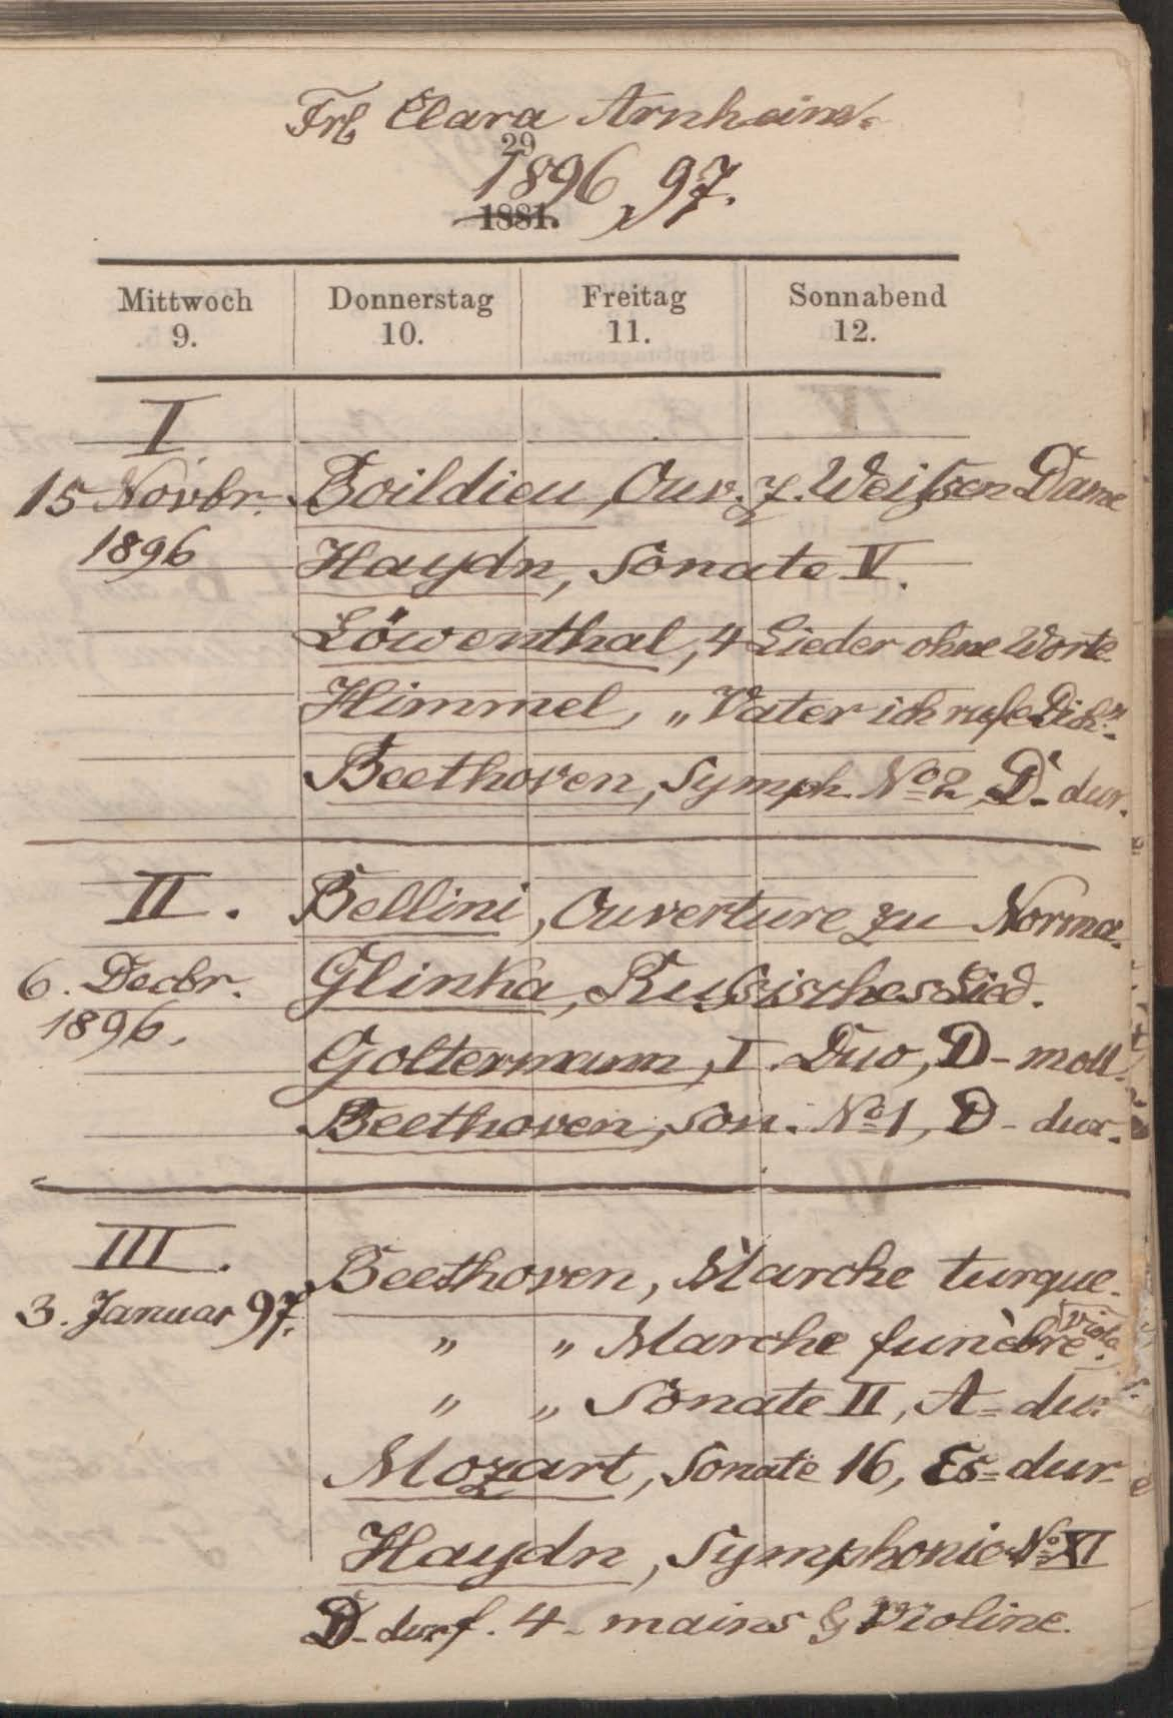 Frl Clara Arnheim.
29
1896, 97.
1881.
Mittwoch Donnerstag Freitag Sonnabend
9. 10. 11. 12.
I
15 Novbr. Boildieu, Ouv. z. Weißen Dame
1896 Haydn, Sonate V.
Löwenthal, 4 Lieder ohne Worte
Himmel, „Vater ich rufe Dich".
Beethoven, Symph. No 2, D-dur.
II. Bellini, Ouverture zu Norma.
6. Decbr. Glinka, Russisches Lied.
1896. Goltermann, I. Duo, D-moll.
Beethoven, Son. No 1, D-dur.
III. Beethoven, Marche turque.
3. Januar 97. „ „ Marche funèbre.
„ „ Sonate II, A-dur.
Mozart, Sonate 16, Es-dur.
Haydn, Symphonie No XI
D-dur f. 4-mains & Violine.